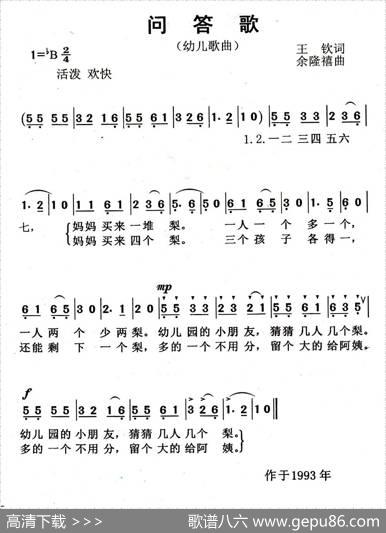 问 答 歌
（幼儿歌曲）
1=♭B 2/4
王 钦词
活泼 欢快
余隆禧曲
(5 5 5 5 | 3 2 1 6 | 5 5 6 1 | 3 2 6 | 1· 2 | 1 0) | 5 5 5 5 | 2 3 6 |
1.2.一二 三四 五六
1· 2 | 1 0 | 1 1 6 1 | 2 3 6 | 5· 6 | 5 0 | 5 5 3 5 | 1· 5 | 6 0 |
七， 妈妈 买来 一堆 梨。 一人 一个 多 一个，
妈妈 买来 四个 梨。 三个 孩子 各得 一，
6 1 6 5 | 3 0 | 2· 1 | 2 0 | 5 5 5 3 | 2 1 2 | 3 5 6 1 | 5 6 5 ∨
mp
一人 两个 少两 梨。幼儿 园的 小朋 友，猜猜 几人 几个梨。
还能 剩下 一个 梨，多的 一个 不用 分，留个 大的 给阿 姨。
f
5 5 5 5 | 3 2 1 6 | 5 5 6 1 | 3 2 6 | 1· 2 | 1 0 ‖
幼儿 园的 小朋 友，猜猜 几人 几个 梨。
多的 一个 不用 分，留个 大的 给阿 姨。
作于1993年
高清下载 >>>
歌谱八六 www.gepu86.com